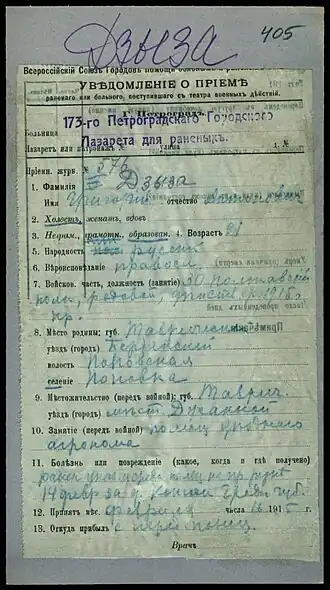 Дзыза
405
Всероссійскій Союзъ Городовъ помощи
УВѢДОМЛЕНІЕ О ПРІЕМѢ
раненаго или больного, поступившаго съ театра военныхъ дѣйствій.
г. Петроградъ.
173-го Петроградскаго Городского
Больница
Лазарета для раненыхъ.
Лазаретъ или улица д. №
Пріемн. журн. № 576
1. Фамилія Дзыза
Имя Григорій отчество Антоновичъ
2. Холостъ, женатъ, вдовъ
3. Неграм., грамотн., образован. 4. Возрастъ 21
5. Народность русскій
6. Вѣроисповѣданіе правосл.
7. Войсков. часть, должность (занятіе) 30 Полтавскій
полк, рядовой, 1915 г.
пр.
8. Мѣсто родины: губ. Таврическая
уѣздъ (городъ) Бердянскій
волость Поповская
селеніе Поповка
9. Мѣстожительство (передъ войной); губ. Таврич.
уѣздъ (городъ) мѣст. Джанкой
10. Занятіе (передъ войной) помощ. уѣзднаго
агронома
11. Болѣзнь или поврежденіе (какое, когда и гдѣ получено)
14 февр. за д. губ.
12. Принятъ мѣс. февраля числа 26 1915 г.
13. Откуда прибылъ съ позиц.
Врачъ